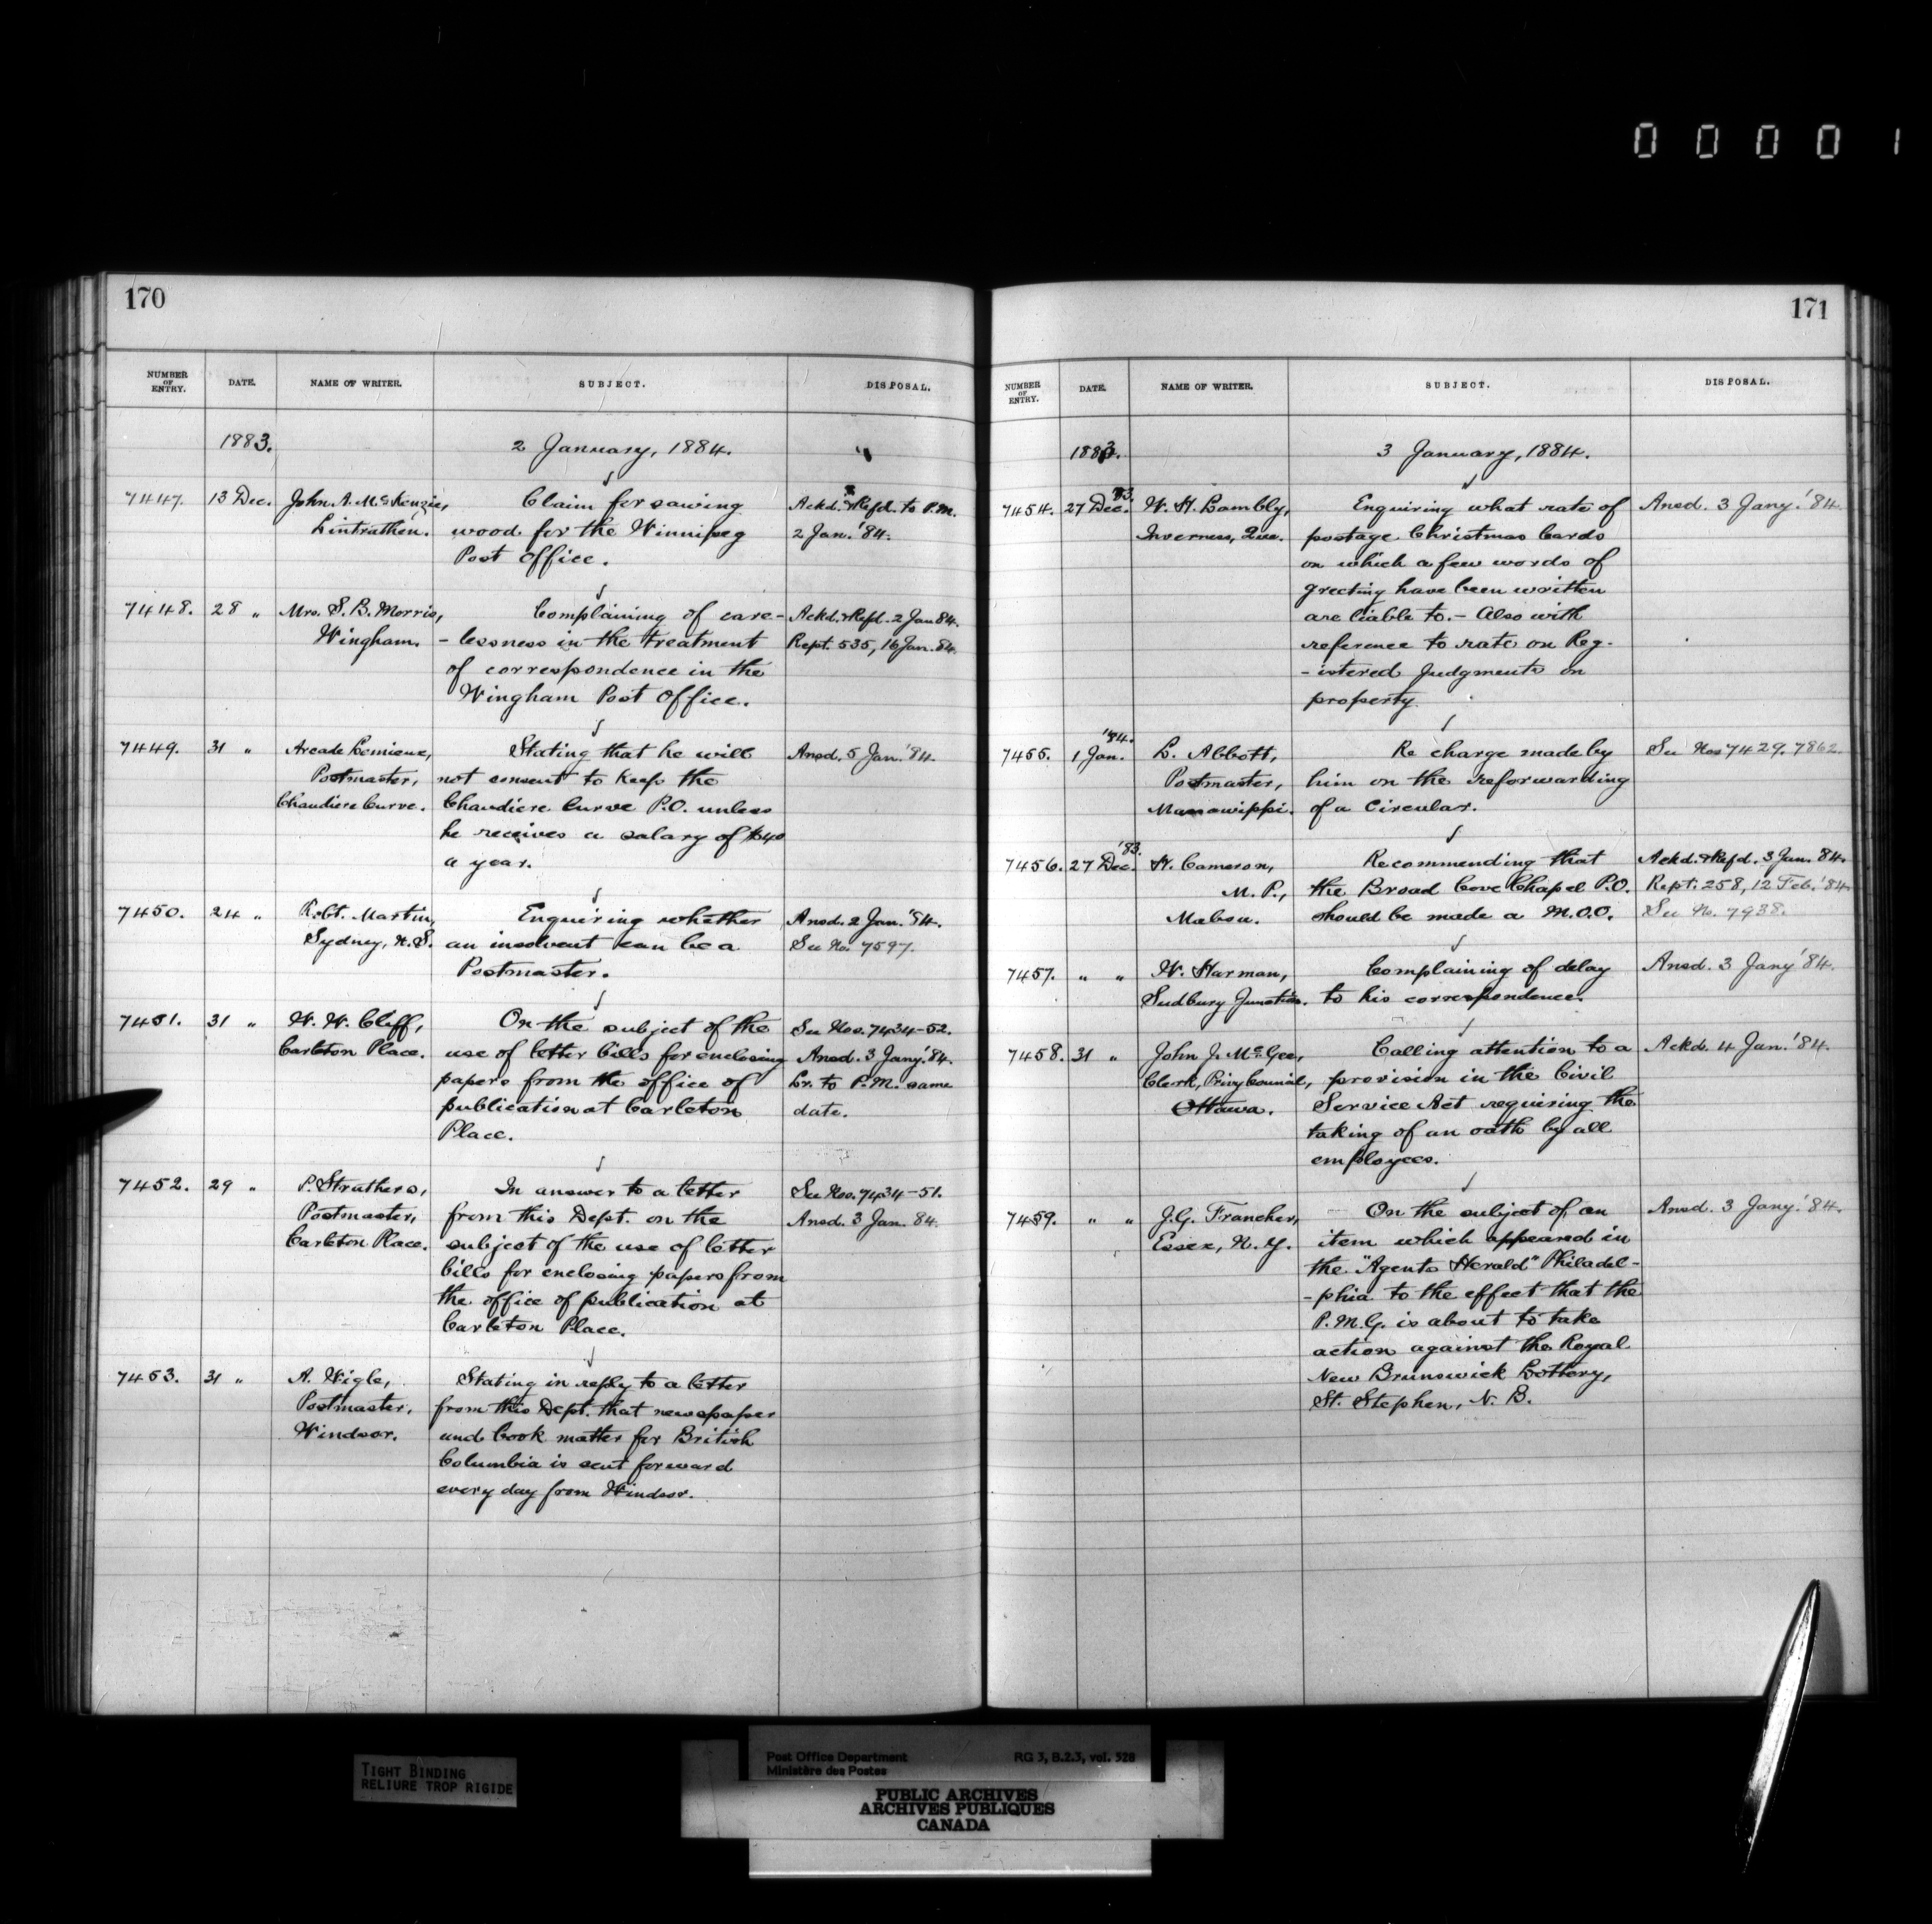 0 0 0 0 1
170
NUMBER OF ENTRY. DATE. NAME OF WRITER. SUBJECT. DISPOSAL.
1883. 2 January, 1884. "
7447. 13 Dec. John A. McKenzie, Claim for sawing Ackd. & Refd. to P.M.
Lintrathen. wood for the Winnipeg 2 Jan. '84.
Post Office.
7448. 28 " Mrs. S. B. Morris, Complaining of care- Ackd. & Refd. 2 Jan 84.
Wingham. -lessness in the treatment Rept. 535, 16 Jan. 84.
of correspondence in the
Wingham Post Office.
7449. 31 " Arcade Lemieux, Stating that he will Ansd. 5 Jan. '84.
Postmaster, not consent to keep the
Chaudiere Curve. Chaudiere Curve P.O. unless
he receives a salary of $40
a year.
7450. 24 " Robt. Martin, Enquiring whether Ansd. 2 Jan. '84.
Sydney, N.S. an insolvent can be a See No. 7597.
Postmaster.
7451. 31 " W. W. Cliff, On the subject of the See Nos. 7434-52.
Carleton Place. use of letter bills for enclosing Ansd. 3 Jany. '84.
papers from the office of Lr. to P.M. same
publication at Carleton date.
Place.
7452. 29 " P. Struthers, In answer to a letter See Nos. 7434-51.
Postmaster, from this Dept. on the Ansd. 3 Jan. 84.
Carleton Place. subject of the use of letter
bills for enclosing papers from
the office of publication at
Carleton Place.
7453. 31 " A. Wigle, Stating in reply to a letter
Postmaster, from this Dept. that newspaper
Windsor. and book matter for British
Columbia is sent forward
every day from Windsor.
171
NUMBER OF ENTRY. DATE. NAME OF WRITER. SUBJECT. DISPOSAL.
1883. 3 January, 1884.
7454. 27 Dec. '83. W. H. Lambly, Enquiring what rate of Ansd. 3 Jany. '84.
Inverness, Que. postage Christmas Cards
on which a few words of
greeting have been written
are liable to. - Also with
reference to rate on Reg-
-istered Judgments on
property.
7455. 1 Jan. '84. L. Abbott, Re charge made by See Nos 7429. 7862.
Postmaster, him on the reforwarding
Massawippi. of a Circular.
7456. 27 Dec. '83. H. Cameron, Recommending that Ackd. & Refd. 3 Jan. 84.
M. P., the Broad Cove Chapel P.O. Rept. 258, 12 Feb. '84
Mabou. should be made a M.O.O. See No. 7938.
7457. " " W. Harman, Complaining of delay Ansd. 3 Jany '84.
Sudbury Junction. to his correspondence.
7458. 31 " John J. McGee, Calling attention to a Ackd. 4 Jan. '84.
Clerk, Privy Council, provision in the Civil
Ottawa. Service Act requiring the
taking of an oath by all
employees.
7459. " " J. G. Francher, On the subject of an Ansd. 3 Jany. '84.
Essex, N.Y. item which appeared in
the "Agents Herald" Philadel-
-phia to the effect that the
P.M.G. is about to take
action against the Royal
New Brunswick Lottery,
St. Stephen, N. B.
TIGHT BINDING
RELIURE TROP RIGIDE
Post Office Department RG 3, B.2.3, vol. 528
Ministère des Postes
PUBLIC ARCHIVES
ARCHIVES PUBLIQUES
CANADA